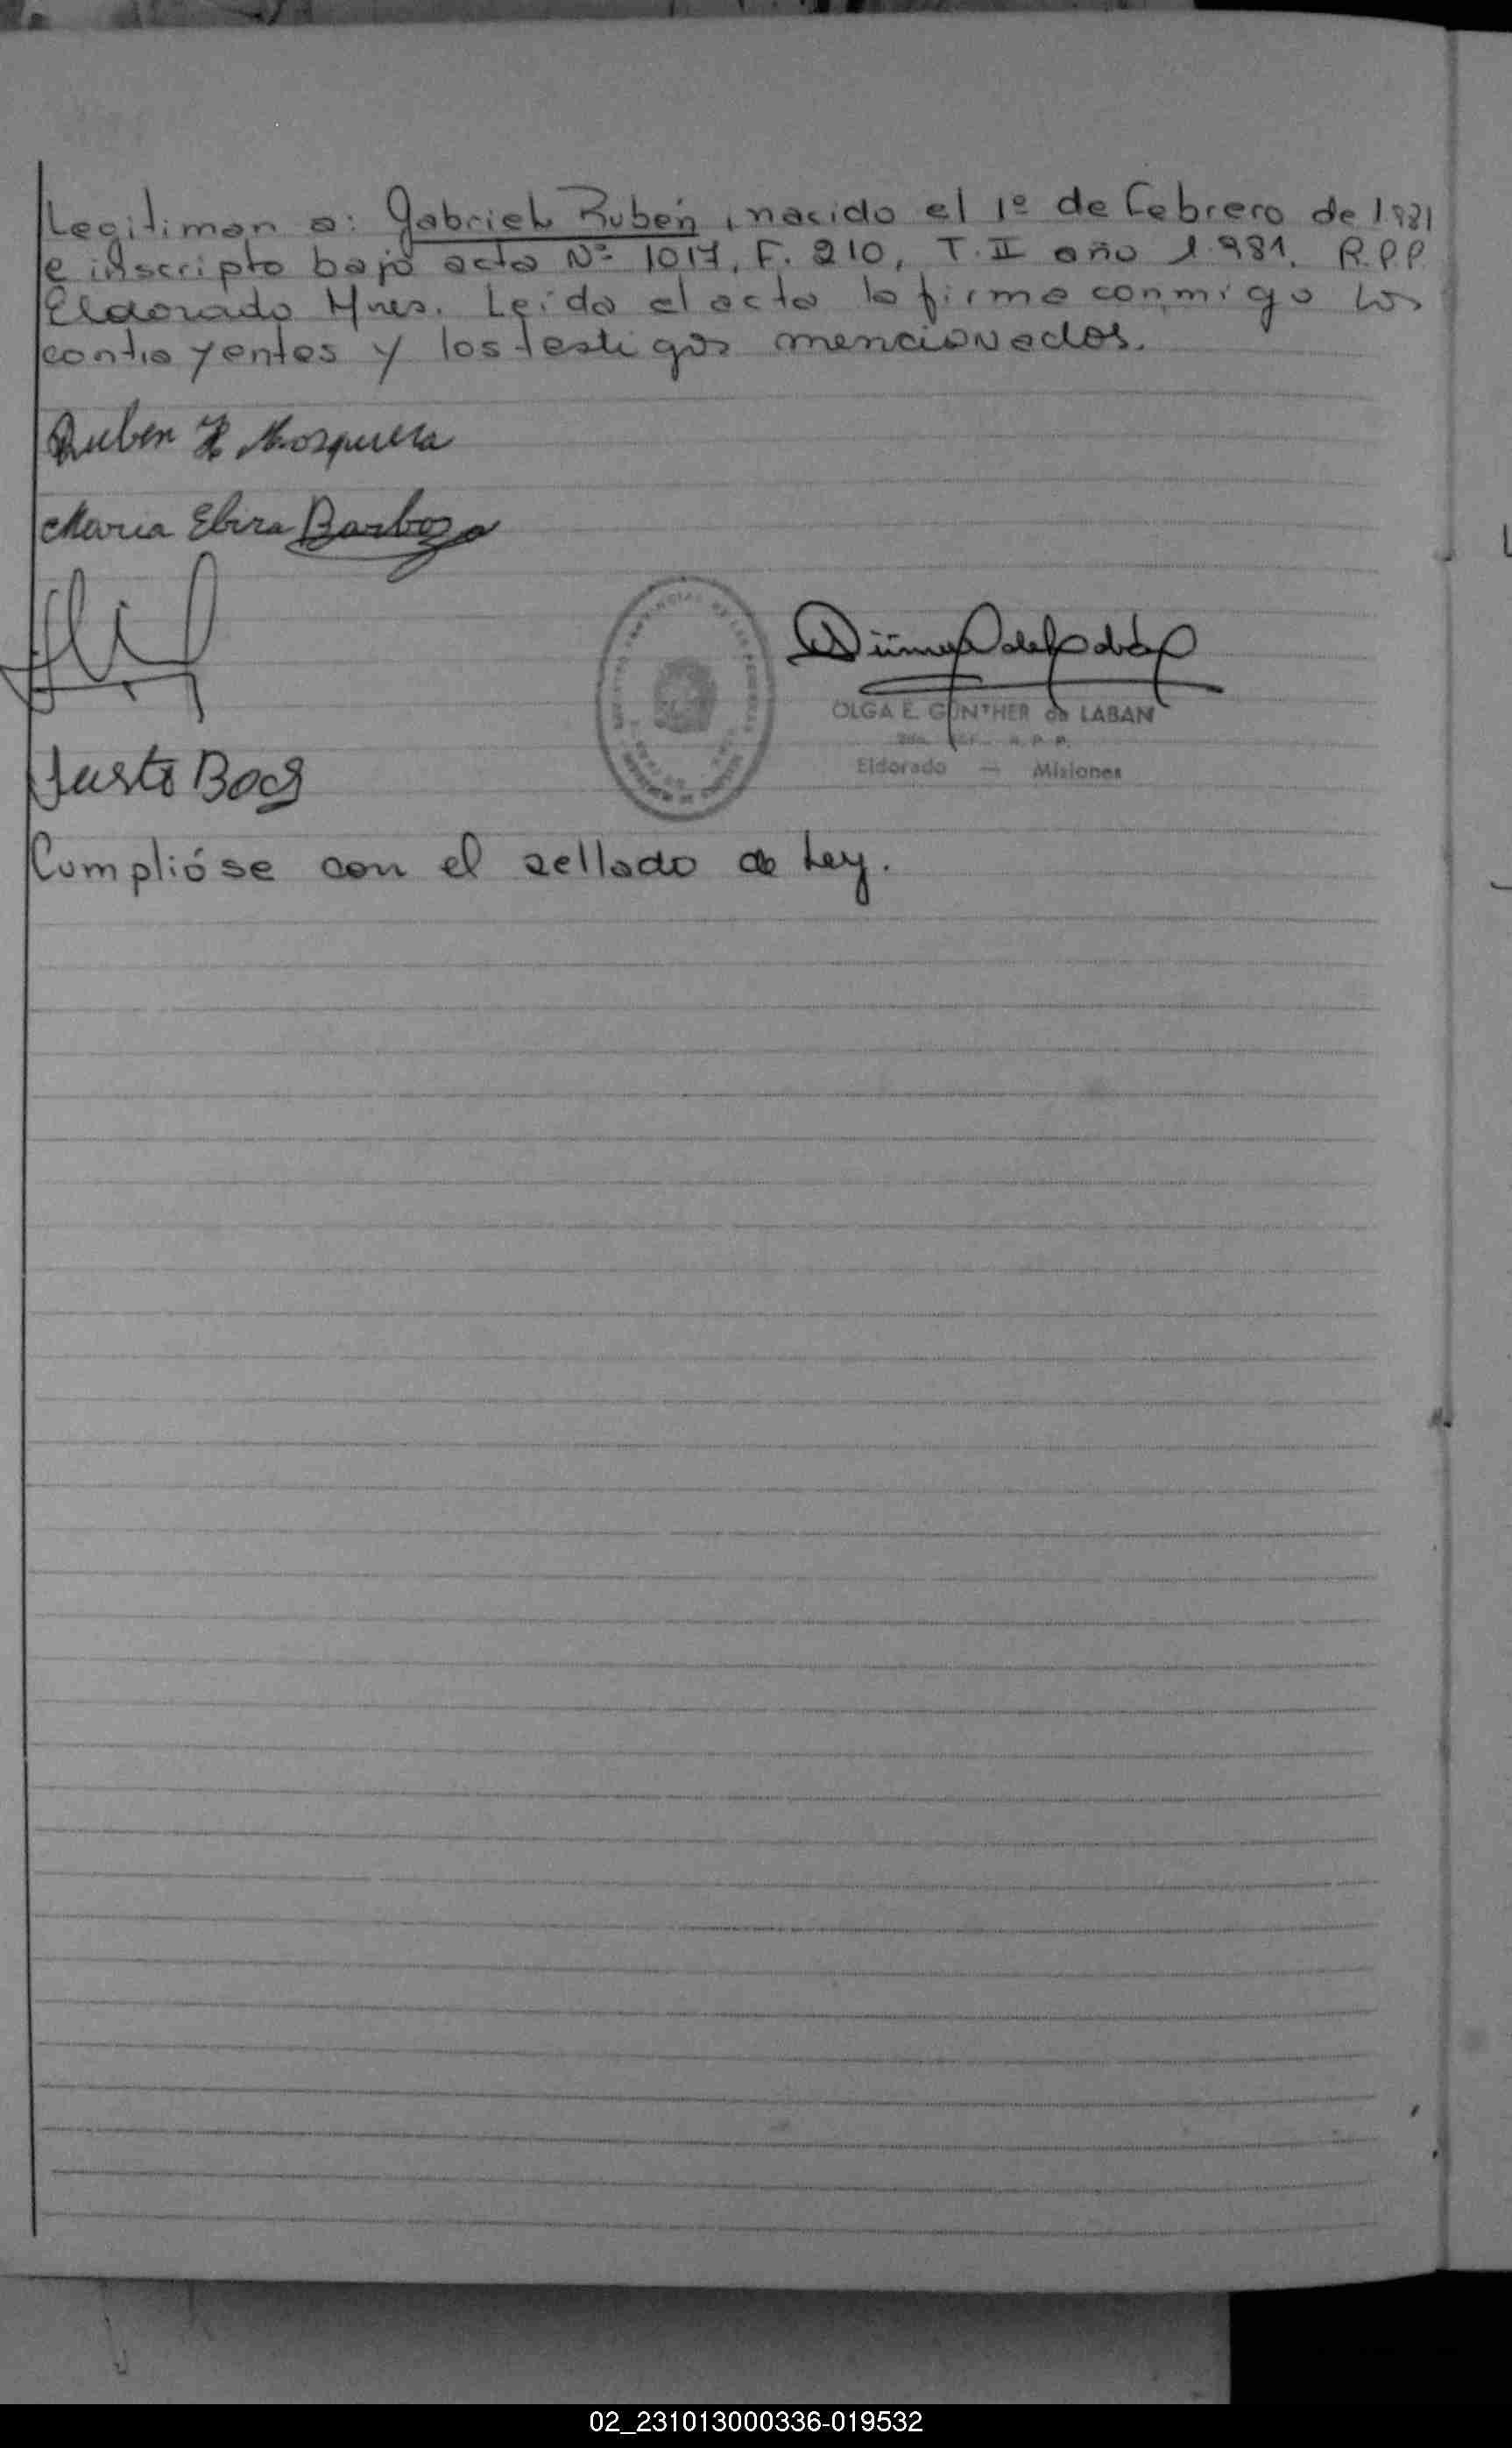 Legitiman a: Gabriel Rubén, nacido el 1º de Febrero de 1.981
e inscripto bajo acta Nº 1017, F. 210, T. II año 1.981. R.P.P.
Eldorado Mnes. Leída el acta la firma conmigo los
contrayentes y los testigos mencionados.
Ruben H Mosquera
Maria Elvira Barboza
OLGA E. GUNTHER de LABAN
R. P. P.
Eldorado — Misiones
Justo Boc
Cumplióse con el sellado de Ley.
02_231013000336-019532